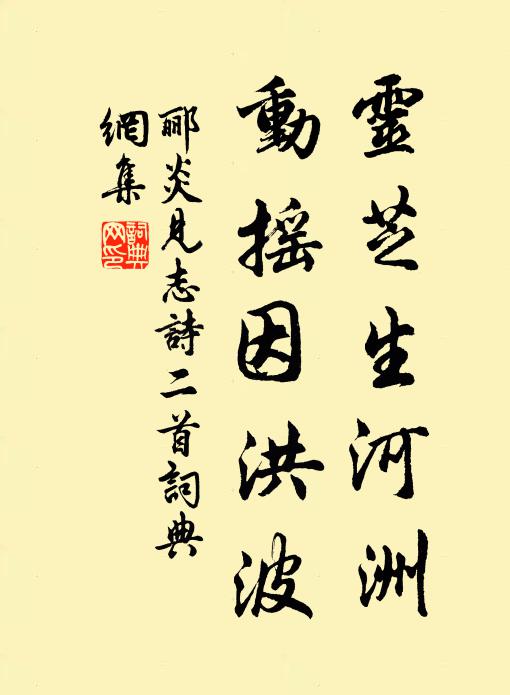 靈芝生河洲
動搖因洪波
郦炎見志詩二首詞典
網集
詞典
网印